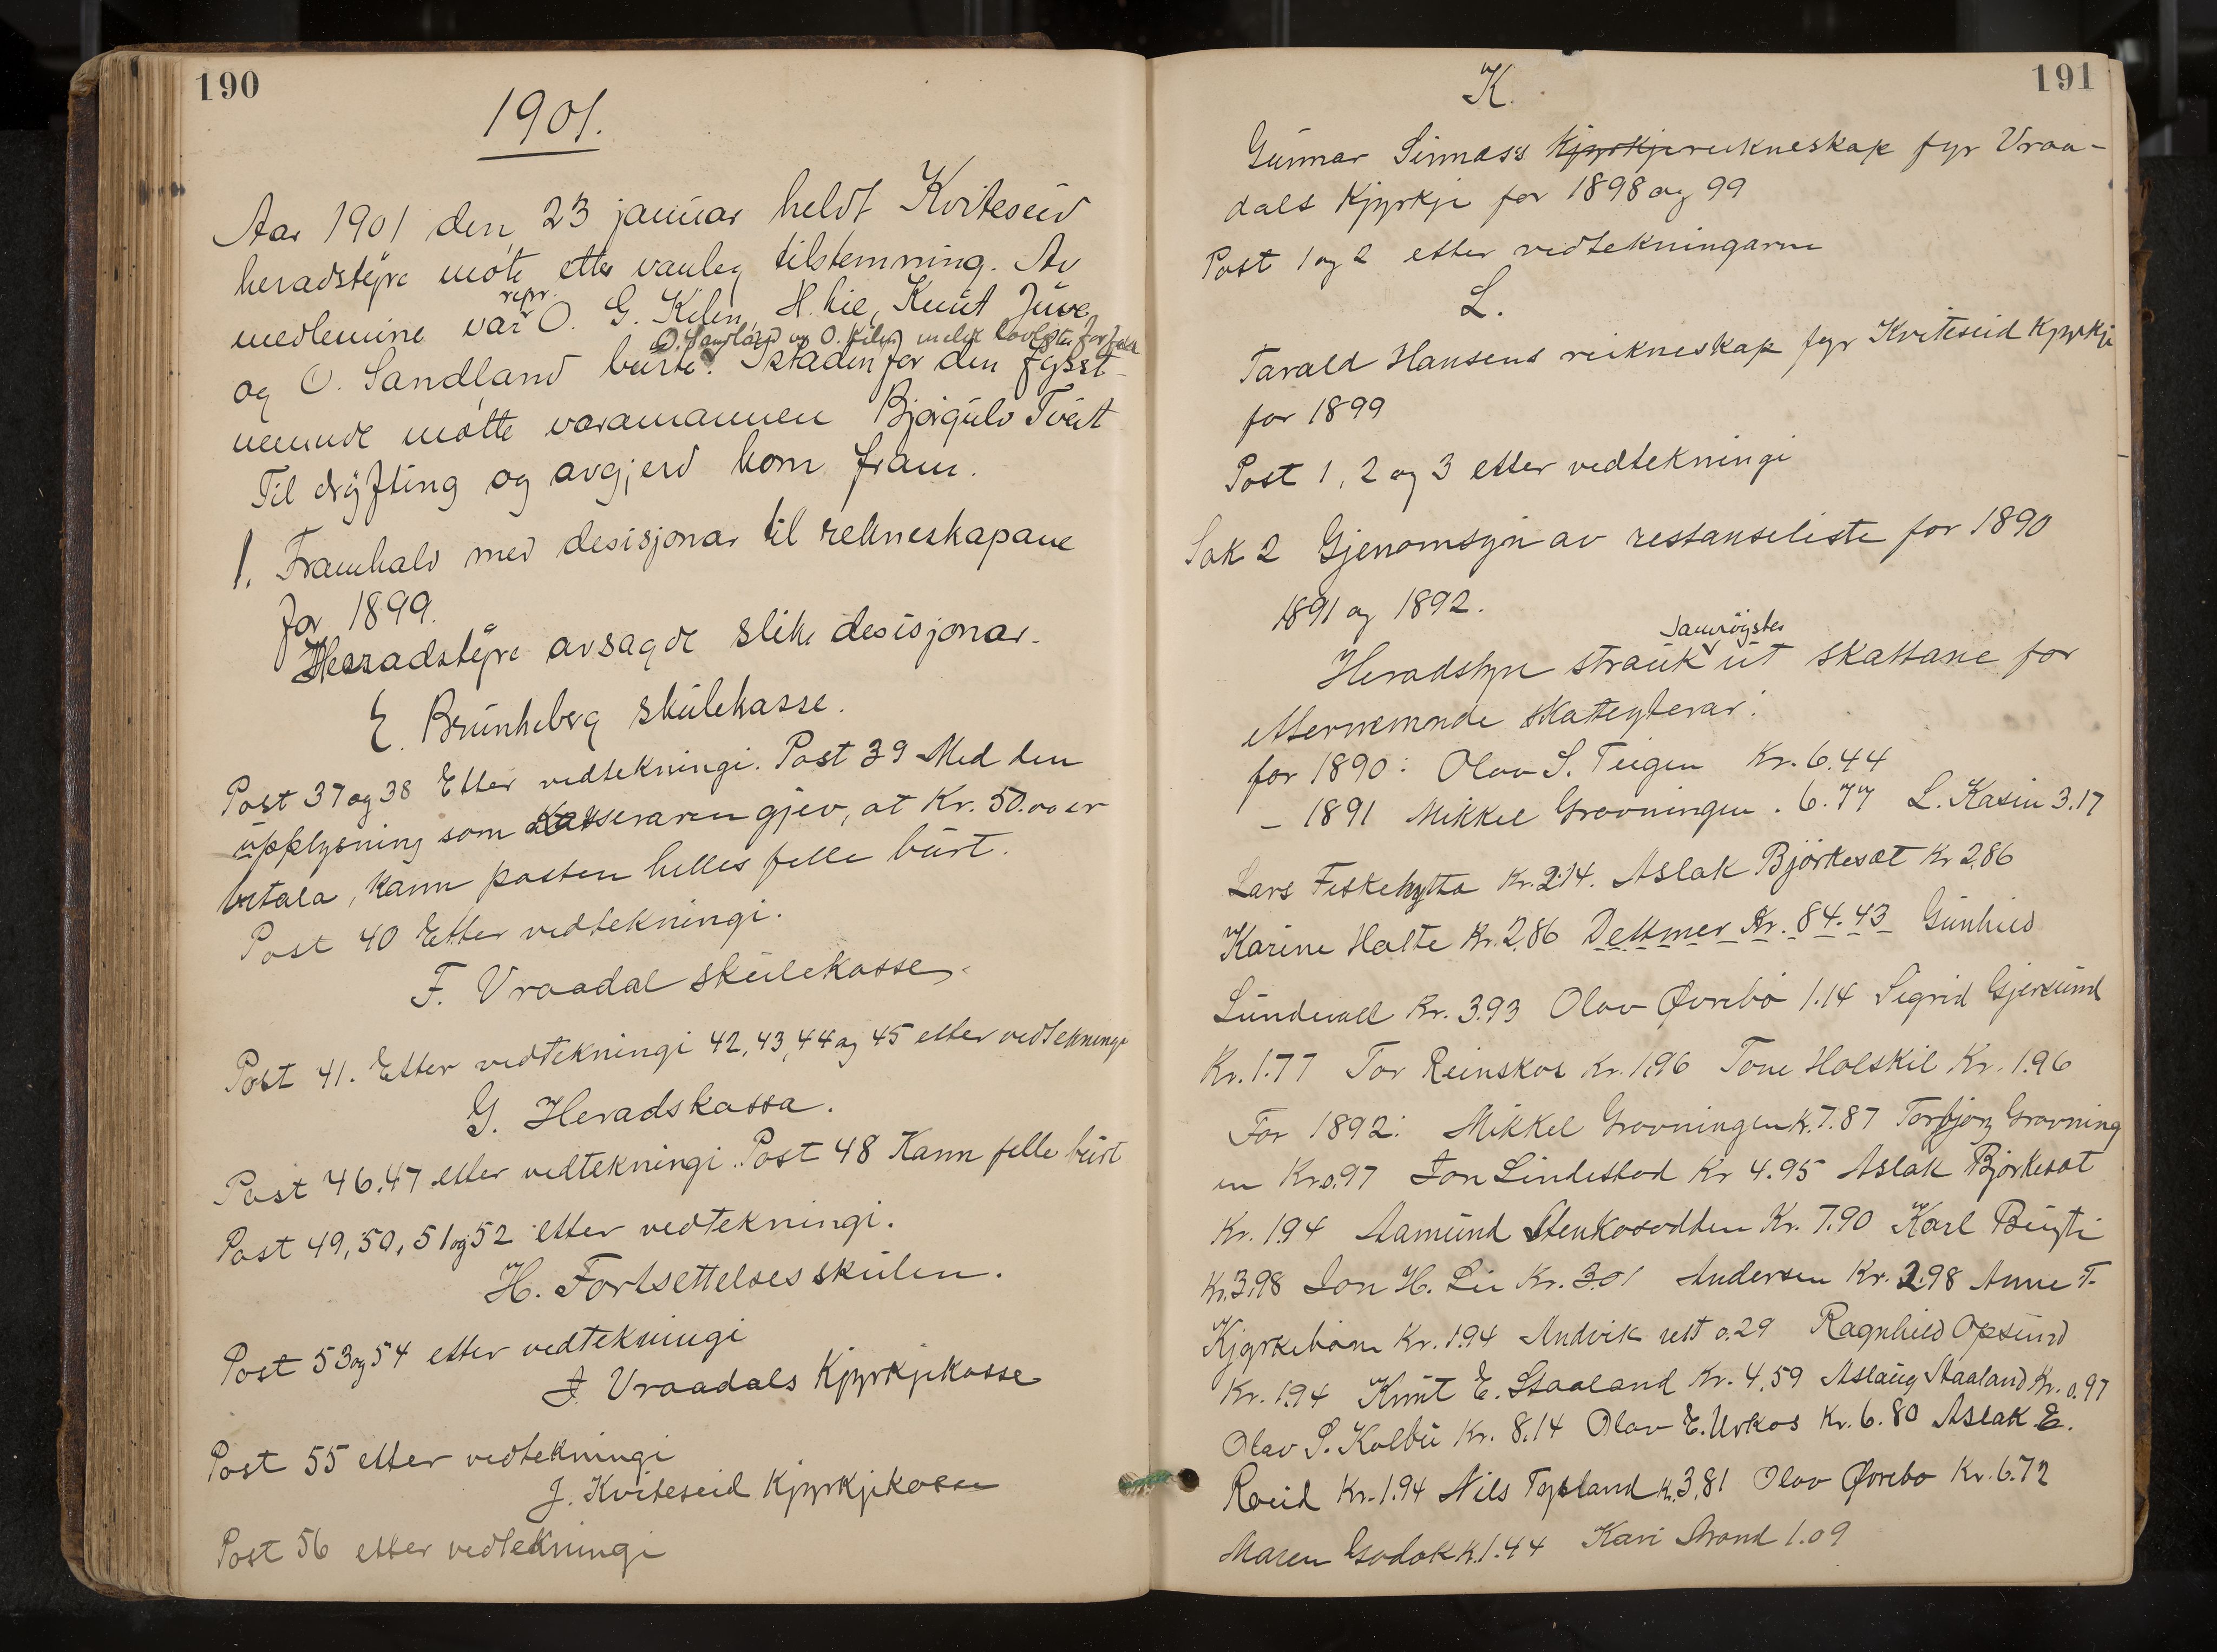 190
1901.
Aar 1901 den 23 januar heldt Kviteseid
heradstyre møte etter vanleg tilstemning. Av
repr.
medlemine var O. G. Kilen, H. Lie, Knut Juve,
O. Sandland og O. Kilen melde lovlege forfall
og O. Sandland burte. Istaden for den fyrst-
nemnde møtte varamannen Bjørgulv Tveit
Til drøfting og avgjerd kom fram.
1. Framhald med desisjonar til rekneskapane
for 1899.
Heradstyre avsagde slike desisjonar.
E. Brunkeberg skulekasse.
Post 37 og 38 Etter vedtekningi. Post 39 Med den
upplysning som kasseraren gjev, at Kr. 50.00 er
betala, kann posten helles felle burt.
Post 40 Etter vedtekningi.
F. Vraadal skulekasse.
Post 41. Etter vedtekningi 42, 43, 44 og 45 etter vedtekningi
G. Heradskassa.
Post 46.47 etter vedtekningi. Post 48 Kann felle burt
Post 49, 50, 51 og 52 etter vedtekningi.
H. Fortsettelsesskulen.
Post 53 og 54 etter vedtekningi
I Vraadals Kjyrkjekasse
Post 55 etter vedtekningi
J. Kviteseid Kjyrkjekasse
Post 56 etter vedtekningi
191
K.
Gunnar Sinnas's Kjyrkjereikneskap fyr Vraa-
dals Kjyrkje for 1898 og 99
Post 1 og 2 etter vedtekningarne
L.
Tarald Hansens reikneskap fyr Kviteseid Kjyrkje
for 1899
Post 1, 2 og 3 etter vedtekningi
Sak 2 Gjenomsyn av restanseliste for 1890
1891 og 1892.
Samrøystes
Heradstyre strauk ut skattane for
etternemnde skatteytarar:
for 1890: Olav S. Teigen Kr. 6.44
- 1891 Mikkel Grovningen . 6.77 L. Kasin 3.17
Lars Fiskehytta Kr. 2.14. Aslak Bjørkesæt Kr 2,86
Karine Halte Kr. 2,86 Dettmer Kr. 84.43 Gunhild
Sundevall Kr. 3.93 Olav Øvrebø 1.14 Sigrid Gjersund
Kr. 1.77 Tor Reinskos Kr. 1,96 Tone Holskil Kr. 1.96
For 1892: Mikkel Grovningen K. 7.87 Torbjørg Grovning
en Kr. 0.97 Jon Lindestad Kr 4.95 Aslak Bjørkesæt
Kr. 1.94 Aamund Stenkosodden Kr. 7.90 Karl
Kr. 3,98 Jon H. Lie Kr. 3.01 Andersen Kr. 2.98 Anne T.
Kjyrkebøen Kr. 1.94 Andvik rest 0.29 Ragnhild Opsund
Kr. 1.94 Knut E. Staaland Kr. 4.59 Aslaug Staaland Kr. 0.97
Olav S. Kolbu Kr. 8.14 Olav E. Urkos Kr. 6.80 Aslak E.
Roeid Kr. 1.94 Nils Typland K. 3,81 Olav Øvrebø Kr. 6.72
Maren K. 1.44 Kari Strand 1.09